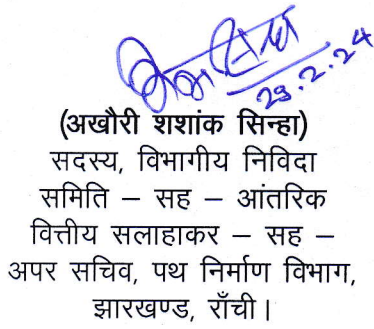 29.2.24
(अखौरी शशांक सिन्हा)
सदस्य, विभागीय निविदा
समिति – सह – आंतरिक
वित्तीय सलाहाकर – सह –
अपर सचिव, पथ निर्माण विभाग,
झारखण्ड, राँची।